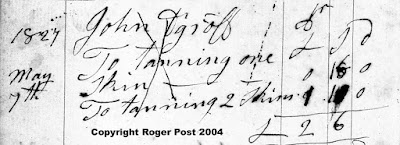 1827 John Dgroff Dr
£ s d
May To tanning one
Skin 0 18 0
7th To tanning 2 Skins 1 1 0
£ 2 6
Copyright Roger Post 2004